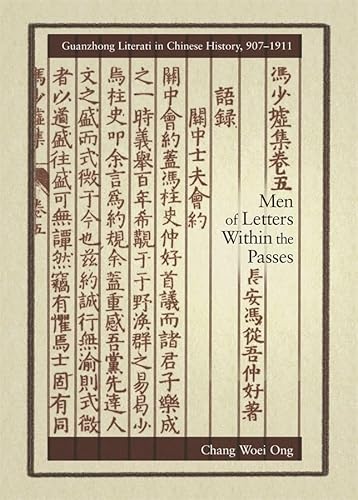 Guanzhong Literati in Chinese History, 907–1911
馮少墟集卷五
長安馮從吾仲好著
語錄
關中士夫會約
關中會約蓋馮柱史仲好首議而諸君子樂成
之一時義舉百年希覯于于野渙群之易易少
焉柱史叩余言為約規余蓋重感吾黨先達人
文之盛而式微于今也茲約誠行無渝則式微
者以道盛往盛可無譚然竊有懼焉士固有同
馮少墟集 卷五
Men
of Letters
Within the
Passes
Chang Woei Ong